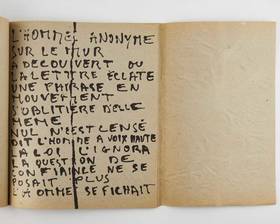 L'HOMME ANONYME
SUR LE MUR
A DECOUVERT OU
LA LETTRE ECLATE
UNE PHRASE EN
MOUVEMENT
S'OBLITERE D'ELLE
MEME
NUL N'EST CENSÉ
DIT L'HOMME A VOIX HAUTE
LA LOI L'IGNORA
LA QUESTION DE
CONFIANCE NE SE
POSAIT PLUS
L'HOMME SE FICHAIT